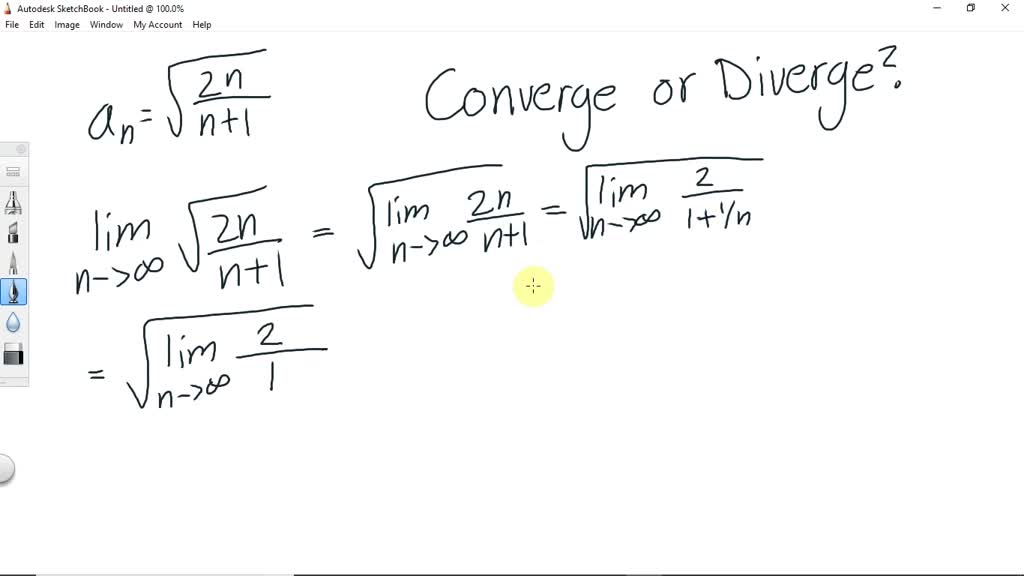 Autodesk SketchBook - Untitled @ 100.0%
File Edit Image Window My Account Help
aₙ = √(2n/(n+1)) Converge or Diverge?
lim n->∞ √(2n/(n+1)) = √(lim n->∞ 2n/(n+1)) = √(lim n->∞ 2/(1+1/n))
= √(lim n->∞ 2/1)